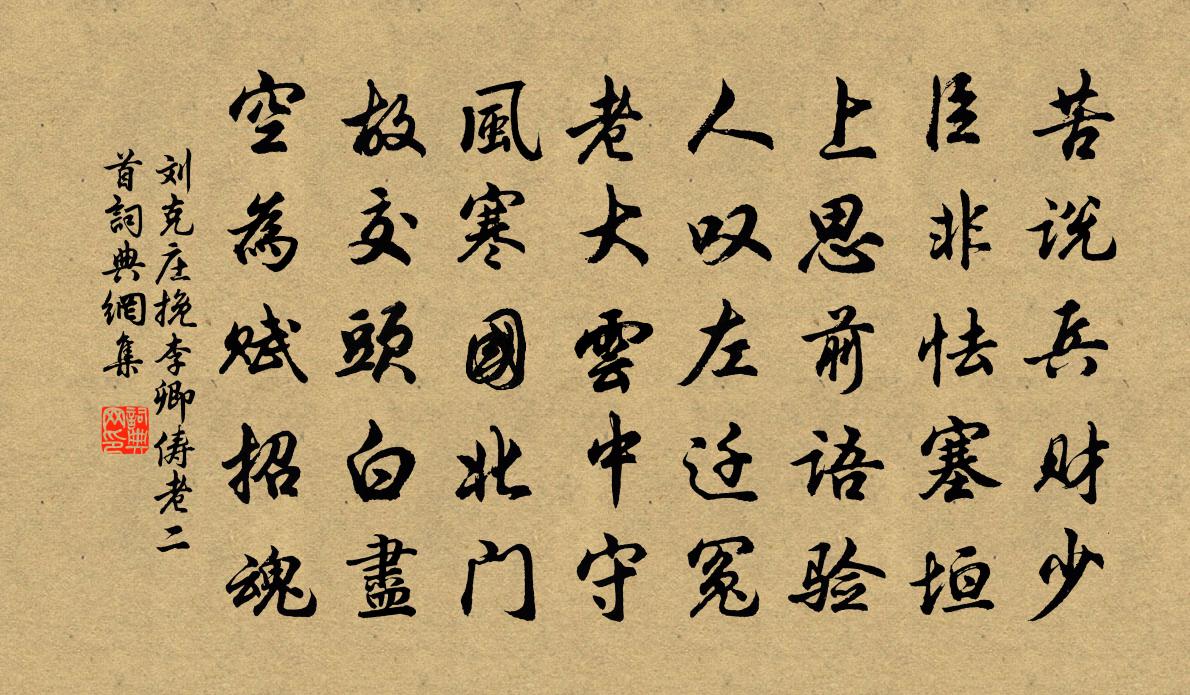 苦说兵财少
臣非怯塞垣
上思前语验
人叹左迁冤
老大雲中守
風寒國北门
故交頭白盡
空為赋招魂
刘克庄挽李卿俦老二
首詞典網集
詞典
网印